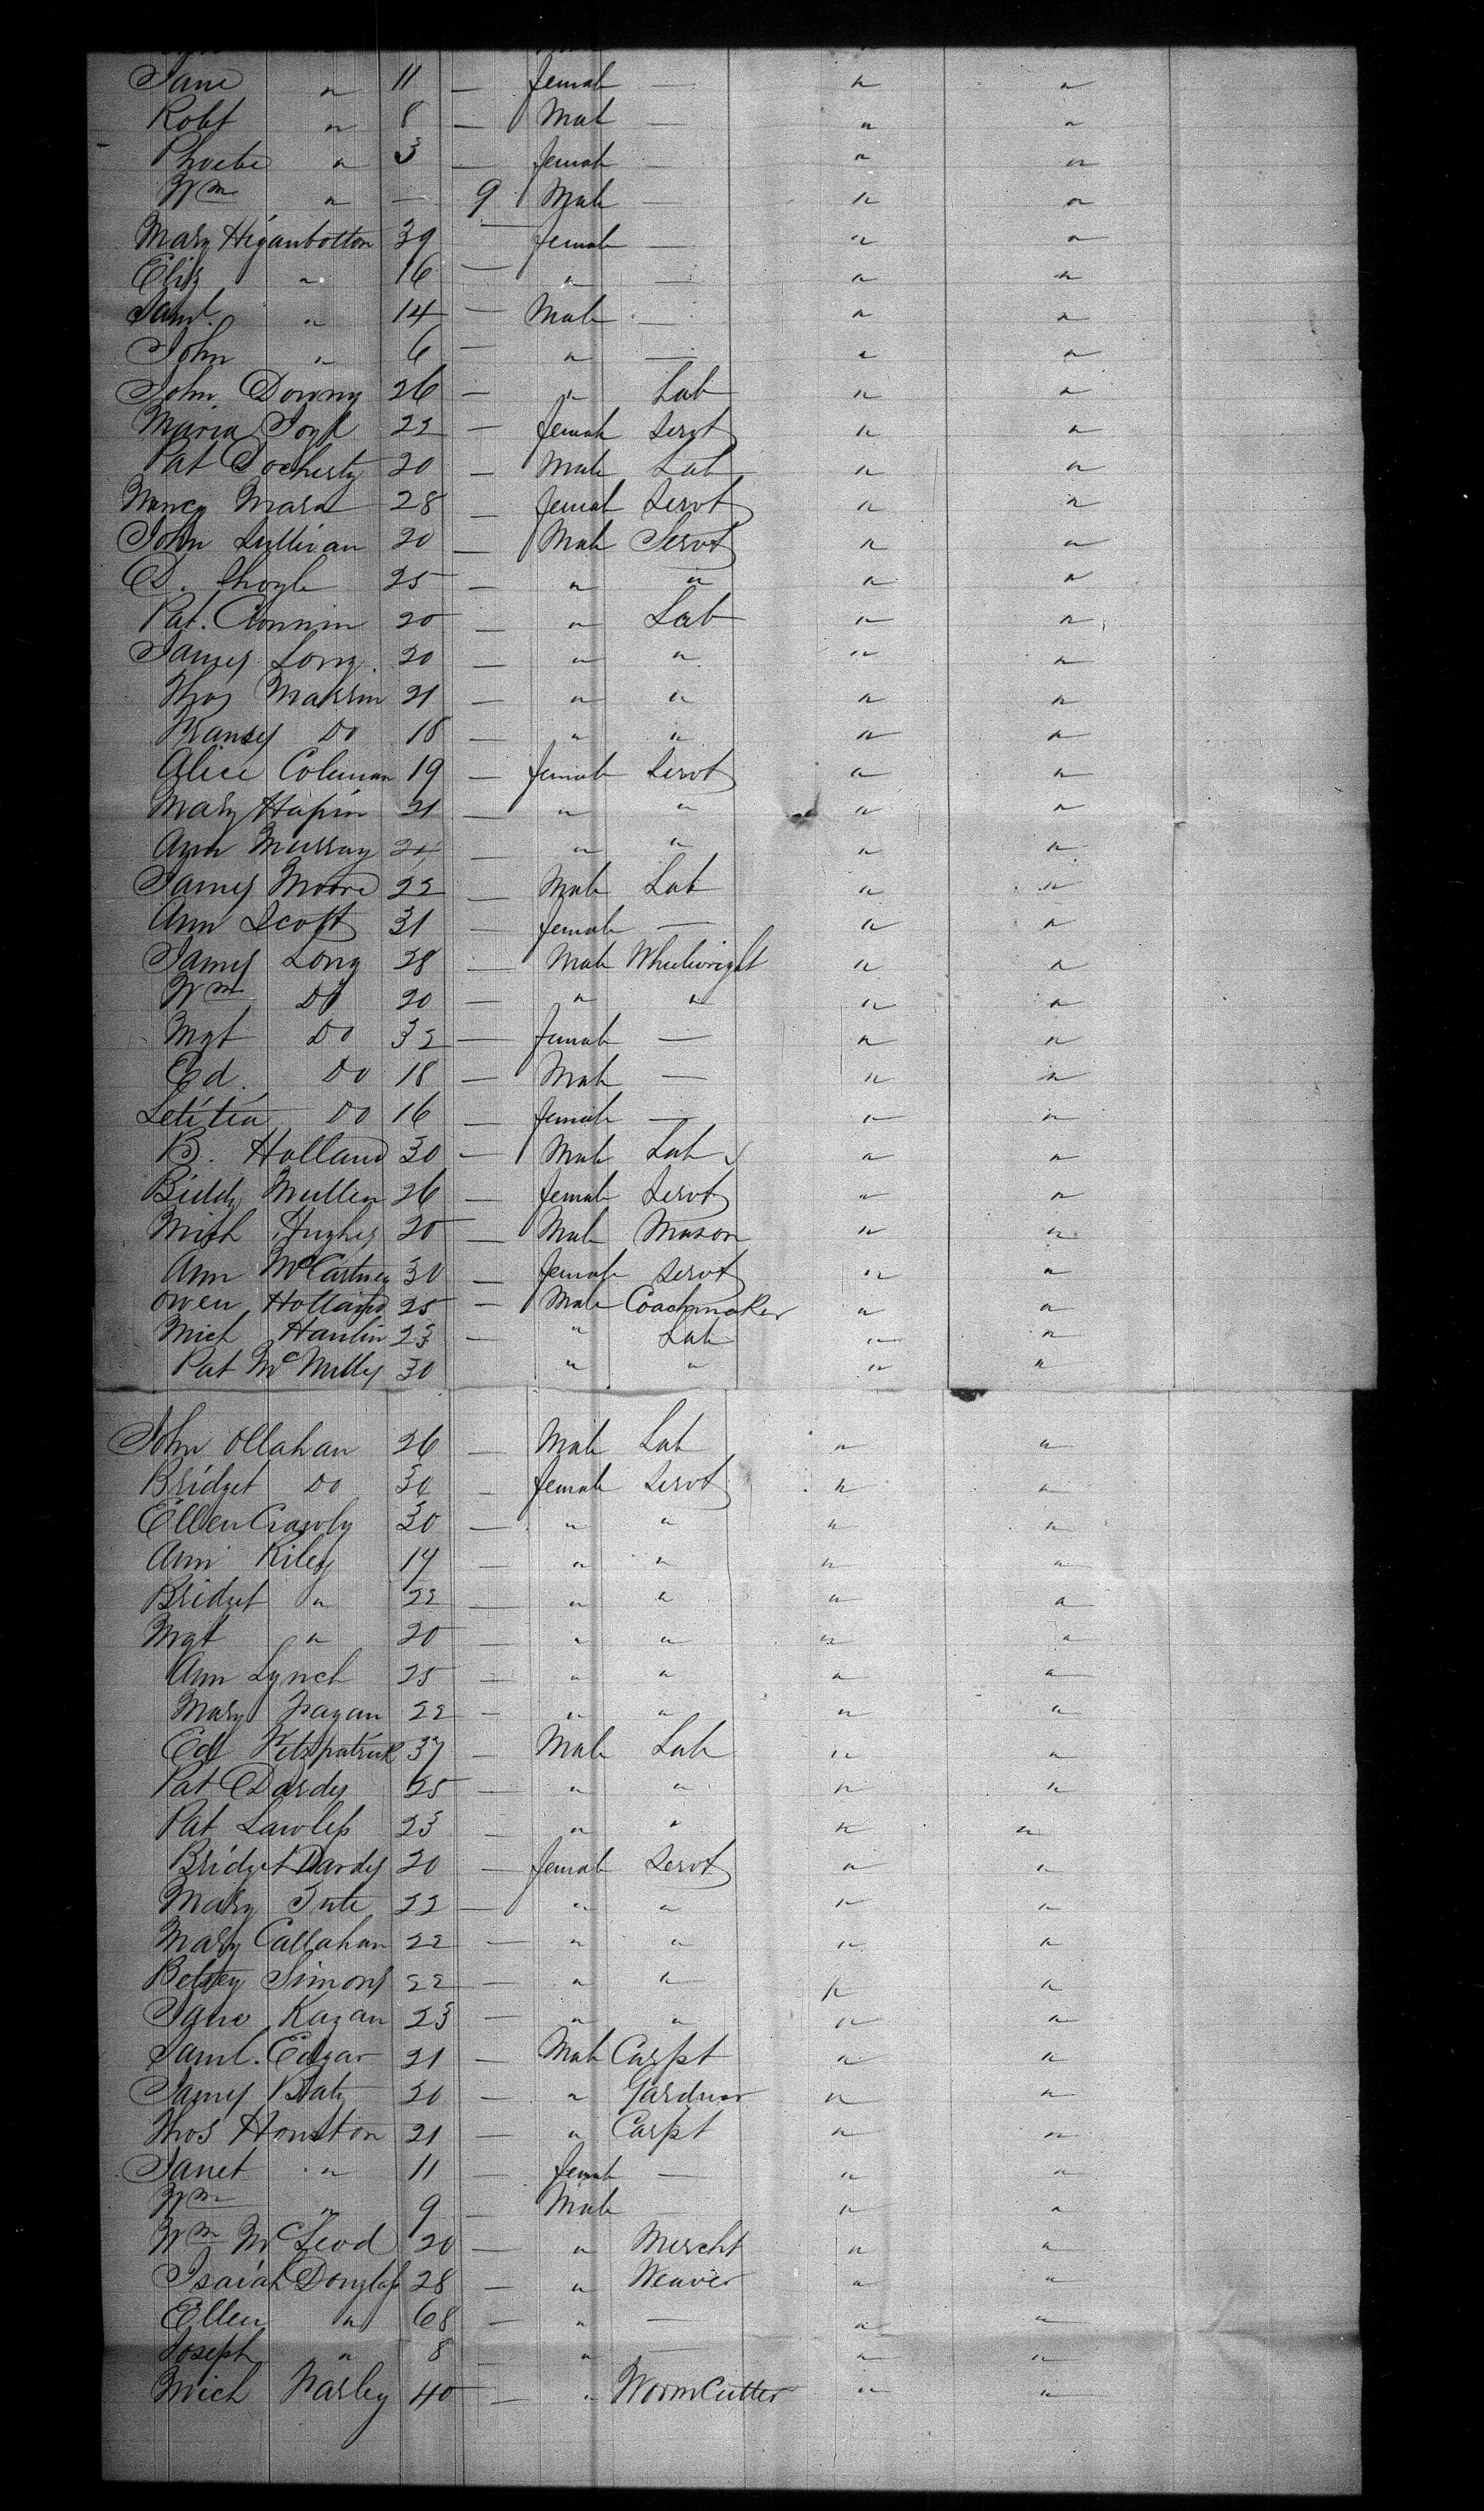 Jane " 11 — female — " "
Robt " 8 — Male — " "
Phoebe " 3 — female — " "
Wm " — 9 Male — " "
Mary Higanbotton 39 — female — " "
Eliz " 16 — " — " "
Saml. " 14 — Male — " "
John " 6 — " — " "
John Downy 26 — " Lab " "
Maria 22 — female Servt " "
Pat Docherty 20 — Male Lab " "
Nancy Mara 28 — female Servt " "
John Sullivan 20 — Male Servt " "
25 — " " " "
Pat. Cronnin 20 — " Lab " "
James Long. 20 — " " " "
Thos 21 — " " " "
Do 18 — " " " "
Alice Coleman 19 — female Servt " "
Mary Hapin 21 — " " " "
Ann Murray 24 — " " " "
James Moore 22 — Male Lab " "
Ann Scott 31 — female — " "
James Long 28 — Male Wheelwright " "
Wm Do 20 — " " " "
Mgt Do 32 — female — " "
Ed. Do 18 — Male — " "
Letitia Do 16 — female — " "
B. Holland 30 — Male Lab " "
Biddy Mullen 26 — female Servt " "
Mich Hughes 20 — Male Mason " "
Ann McCartney 30 — female Servt " "
Owen Holland 25 — Male Coachmaker " "
Mich Hanlin 23 — " Lab " "
Pat McNulty 30 " " " "
John Ollahan 26 — Male Lab " "
Bridget Do 30 — female Servt " "
Ellen Crawly 30 — " " " "
Ann Riley 17 — " " " "
Bridget " 22 — " " " "
Mgt " 20 — " " " "
Ann Lynch 25 — " " " "
Mary Fagan 22 — " " " "
Ed Fitzpatrick 37 — Male Lab " "
Pat Dardy 25 — " " " "
Pat Lawless 23 — " " " "
Bridget Dardy 20 — female Servt " "
Mary Tute 22 — " " " "
Mary Callahan 22 — " " " "
Betsey Simons 22 — " " " "
Jane Kagan 23 — " " " "
Saml. Edgar 21 — Male Carpt " "
James Bate 20 — " Gardner " "
Thos Houston 21 — " Carpt " "
Janet " 11 — female — " "
Wm " 9 — Male " "
Wm McLeod 20 — " Mercht " "
Isaiah Douglass 28 — " Weaver " "
Ellen " 68 — " — " "
Joseph " 8 — " — " "
Mich Farley 40 — " WormCutter " "